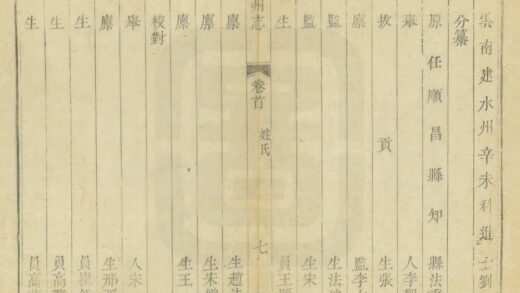 雲南建水州辛未科進士劉
分纂
原任順昌縣知縣法
舉人李
拔貢生張
廩監李
監生法
監生宋
生員王
州志 卷首 姓氏 七
廩生趙
廩生朱
廩生王
校對
舉人宋
廩生邢
生員崔
生員高
生員高